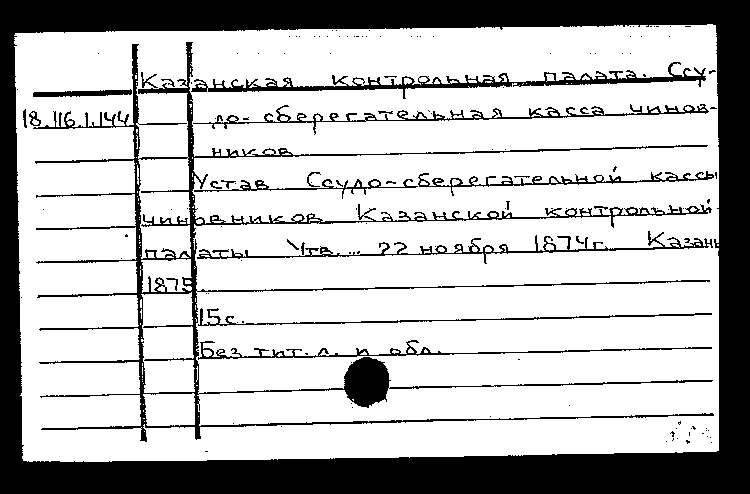 Казанская контрольная палата. Ссу-
18.116.1.144 до-сберегательная касса чинов-
ников
Устав Ссудо-сберегательной кассы
чиновников Казанской контрольной
палаты Утв... 22 ноября 1874г. Казань
1875.
15с.
Без тит. л. и обл.